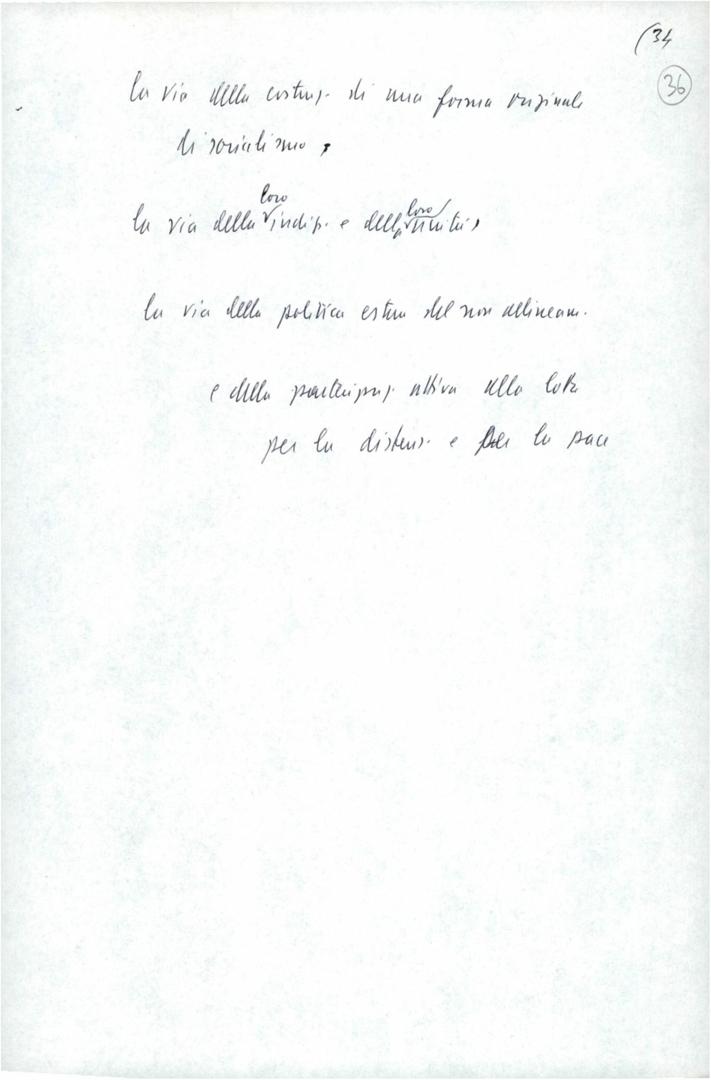 (34
36
la via della costruz. di una forma originale
di socialismo,
loro loro
la via della indip. e della unità,
la via della politica estera del non allineam.
e della partecipaz. attiva alla lotta
per la distens. e per la pace